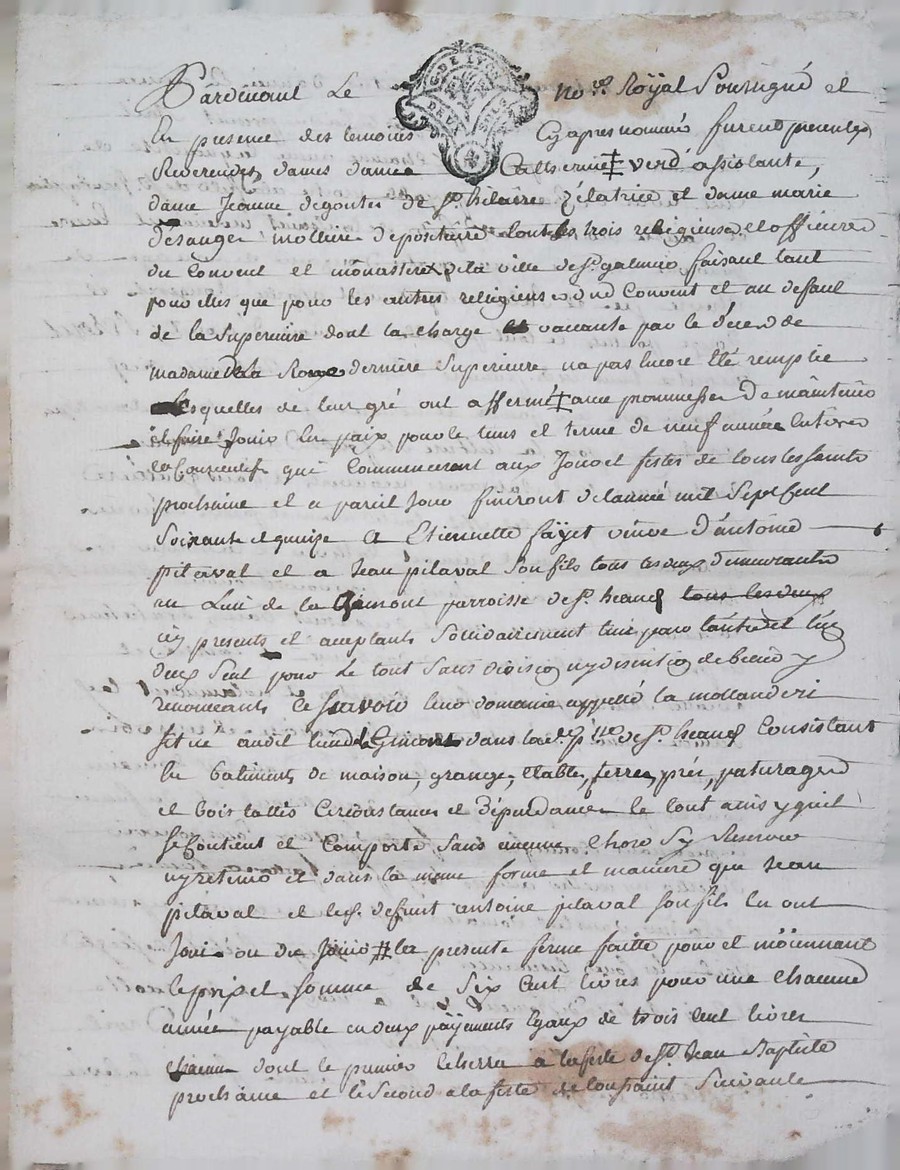 G. DE LYON
DEUX SOLS
Pardevant Le no.re Royal Soussigné et
En presence des temoins Cy apres nommés furent presentes
Reverendes dames dame Catherine verd assistante,
dame Jeanne degoutes de St. hilaire Zelatrice et dame marie
depositaire toutes trois religieuses et officieres
du Convent et monastere de la ville de St. galmier faisant tant
pour elles que pour les autres religieuses dud Convent et au defaut
de la Superieure dont la charge est vaccante par le deces de
madame De La derniere Superieure na pas encore été remplie
Lesquelles de leur gré ont affermé avec promesse De maintenir
et faire Jouir En paix pour le tems et terme de neuf années Entieres
et Consecutives qui Commenceront aux Jour et festes de tous les Saints
prochaine et a pareil Jour finiront de lannée mil Sept Cent
Soixante et quinze A Etiennette fayet veuve d'antoine
pitaval et a Jean pitaval Son fils tous les deux demeurants
au Lieu de la Gimont parroisse de St. heand tous les deux
icy presents et acceptants Solidairement l'un pour lautre et l'un
deux Seul pour Le tout Sans division ny discution de biens y
renonceants Scavoir leur domaine appellé la
Situé audit lieu de Gimont dans lad. p.sse de St. heand Consistant
En batiments de maison, grange, Etables, terres, prés, paturages
et bois taillis Circonstances et Dependances le tout ainsy quil
Se Contient et Comporte Sans aucune Chose Sy Reserver
ny retenir et dans la meme forme et maniere que Jean
pitaval et led. defunt antoine pitaval Son fils En ont
Joui ou du Jouir La presente ferme faitte pour et moiennant
le prix et Somme de Six Cent livres pour une Chacune
année payable en deux payements Egaux de trois Cent livres
Chacun dont le premier Echerra a la feste de St. Jean Baptiste
prochaine et le Second a la feste de toussaint Suivante